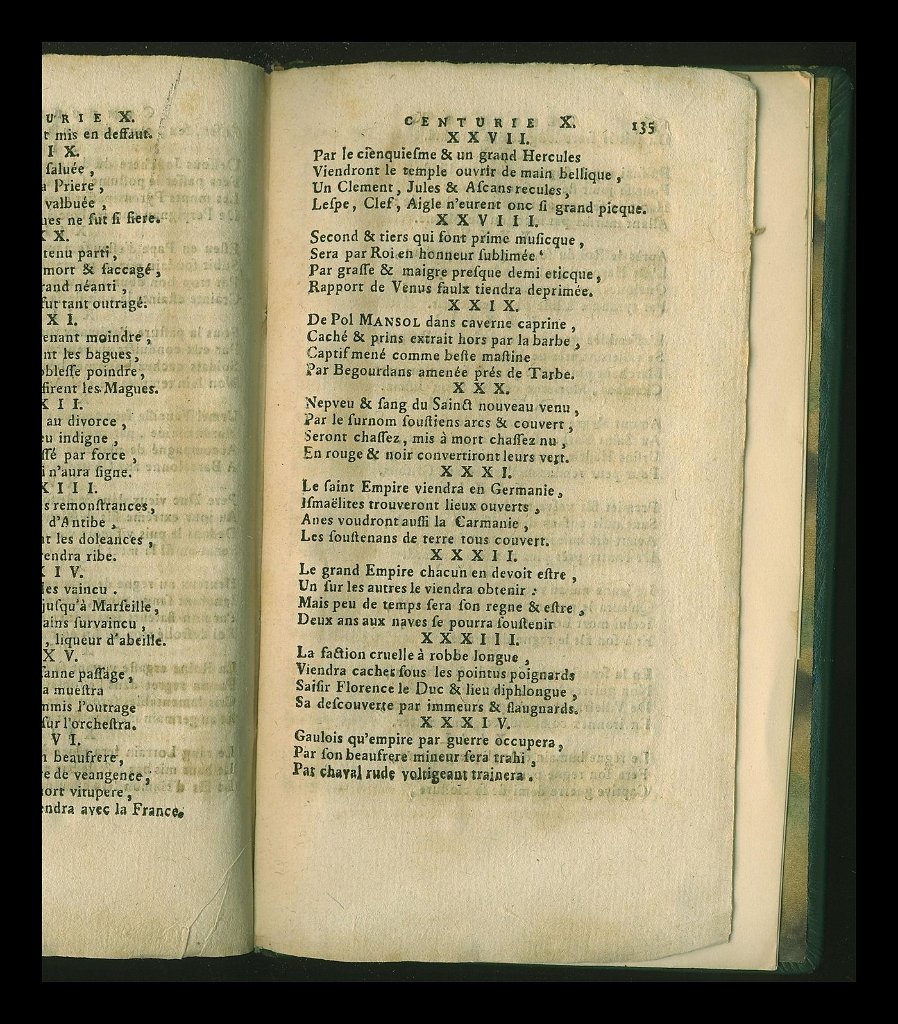 URIE X.
t mis en deffaut.
I X.
ſaluée ,
a Priere ,
valbuée ,
ues ne fut ſi fiere.
X X.
tenu parti ,
mort & ſaccagé ,
rand néanti ,
fut tant outragé.
X I.
enant moindre ,
nt les bagues ,
obleſſe poindre ,
firent les Magues.
X I I.
au divorce ,
eu indigne ,
ſſé par force ,
i n'aura ſigne.
X I I I.
s remonſtrances ,
d'Antibe ,
nt les doleances ,
rendra ribe.
I V.
les vaincu .
juſqu'à Marſeille ,
ains ſurvaincu ,
, liqueur d'abeille.
X V.
ſanne paſſage ,
a mueſtra
mmis l'outrage
ſur l'orcheſtra.
V I.
n beaufrere ,
re de veangence ,
ort vitupere ,
endra avec la France.
CENTURIE X. 135
X X V I I.
Par le cienquieſme & un grand Hercules
Viendront le temple ouvrir de main bellique ,
Un Clement , Jules & Aſcans recules ,
Leſpe , Clef , Aigle n'eurent onc ſi grand picque.
X X V I I I.
Second & tiers qui font prime muſicque ,
Sera par Roi en honneur ſublimée '
Par graſſe & maigre preſque demi eticque ,
Rapport de Venus faulx tiendra deprimée.
X X I X.
De Pol MANSOL dans caverne caprine ,
Caché & prins extrait hors par la barbe ,
Captif mené comme beſte maſtine
Par Begourdans amenée prés de Tarbe.
X X X.
Nepveu & ſang du Sainct nouveau venu ,
Par le ſurnom ſouſtiens arcs & couvert ,
Seront chaſſez , mis à mort chaſſez nu ,
En rouge & noir convertiront leurs vert.
X X X I.
Le ſaint Empire viendra en Germanie ,
Iſmaëlites trouveront lieux ouverts ,
Anes voudront auſſi la Carmanie ,
Les ſouſtenans de terre tous couvert.
X X X I I.
Le grand Empire chacun en devoit eſtre ,
Un ſur les autres le viendra obtenir :
Mais peu de temps ſera ſon regne & eſtre ,
Deux ans aux naves ſe pourra ſouſtenir
X X X I I I.
La faction cruelle à robbe longue ,
Viendra cacher ſous les pointus poignards
Saiſir Florence le Duc & lieu diphlongue ,
Sa deſcouverte par immeurs & flaugnards.
X X X I V.
Gaulois qu'empire par guerre occupera ,
Par ſon beaufrere mineur ſera trahi ,
Par chaval rude voltigeant trainera .